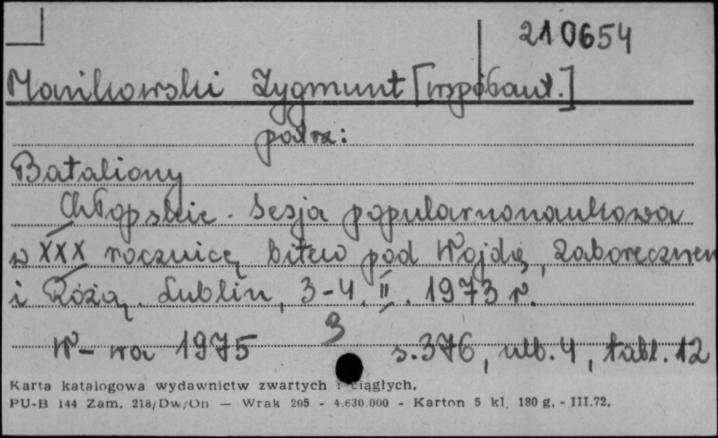 210654
Mańkowski Zygmunt [współaut.]
patrz:
Bataliony
Chłopskie. Sesja popularnonaukowa
w XXX rocznicę bitew pod Wojdą, Zaborecznem
i Różą. Lublin, 3-4. II. 1973 r.
3
W-wa 1975 s. 376, nlb. 4, tabl. 12
Karta katalogowa wydawnictw zwartych i ciągłych.
PU-B 144 Zam. 218/Dw/On — Wrak 205 - 4.630.000 - Karton 5 kl. 180 g. - III.72.